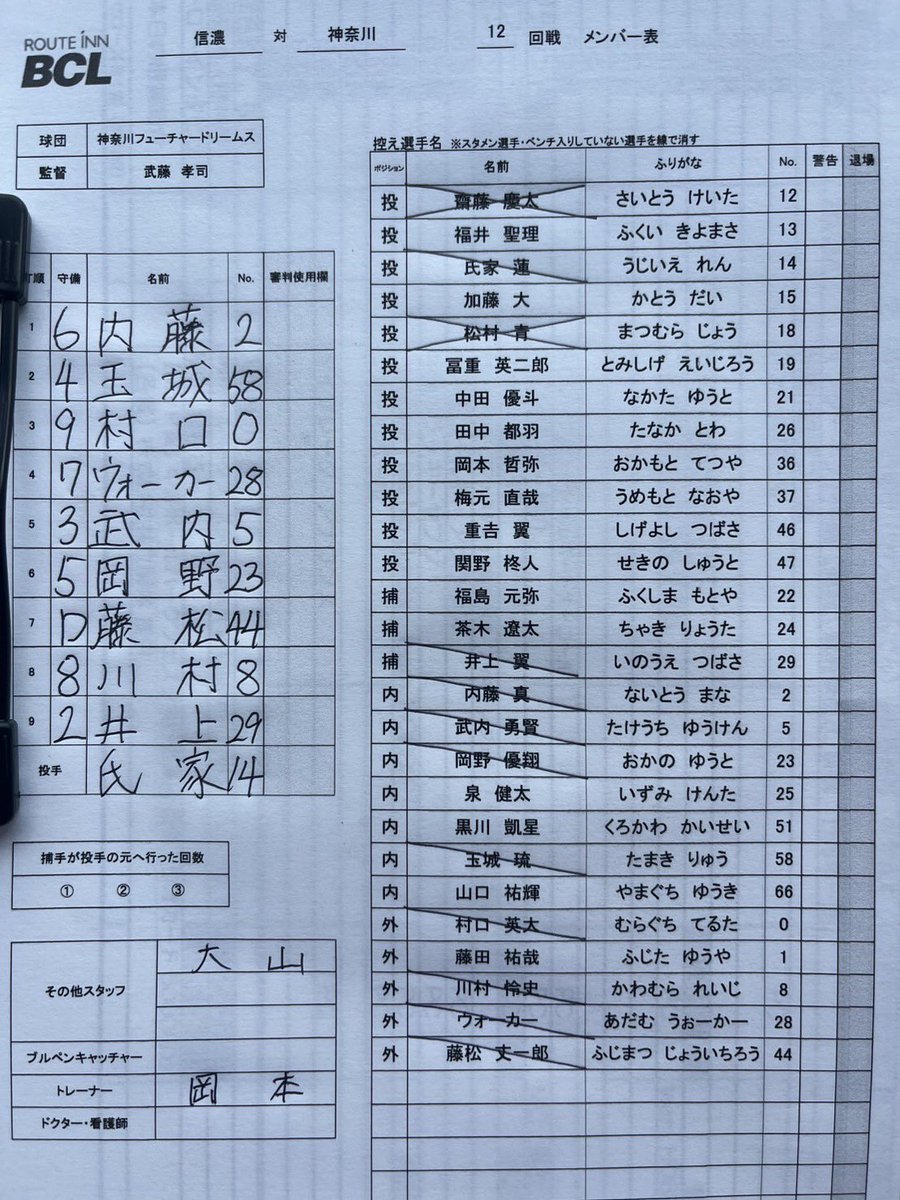 ROUTE INN
BCL
信濃 対 神奈川 12 回戦 メンバー表
球団 神奈川フューチャードリームス
監督 武藤 孝司
打順 守備 名前 No. 審判使用欄
1 6 内藤 2
2 4 玉城 58
3 9 村口 0
4 7 ウォーカー 28
5 3 武内 5
6 5 岡野 23
7 D 藤松 44
8 8 川村 8
9 2 井上 29
投手 氏家 14
捕手が投手の元へ行った回数
① ② ③
その他スタッフ 大山
ブルペンキャッチャー
トレーナー 岡本
ドクター・看護師
控え選手名 ※スタメン選手・ベンチ入りしていない選手を線で消す
ポジション 名前 ふりがな No. 警告 退場
投 齋藤 慶太 さいとう けいた 12
投 福井 聖理 ふくい きよまさ 13
投 氏家 蓮 うじいえ れん 14
投 加藤 大 かとう だい 15
投 松村 青 まつむら じょう 18
投 冨重 英二郎 とみしげ えいじろう 19
投 中田 優斗 なかた ゆうと 21
投 田中 都羽 たなか とわ 26
投 岡本 哲弥 おかもと てつや 36
投 梅元 直哉 うめもと なおや 37
投 重吉 翼 しげよし つばさ 46
投 関野 柊人 せきの しゅうと 47
捕 福島 元弥 ふくしま もとや 22
捕 茶木 遼太 ちゃき りょうた 24
捕 井上 翼 いのうえ つばさ 29
内 内藤 真 ないとう まな 2
内 武内 勇賢 たけうち ゆうけん 5
内 岡野 優翔 おかの ゆうと 23
内 泉 健太 いずみ けんた 25
内 黒川 凱星 くろかわ かいせい 51
内 玉城 琉 たまき りゅう 58
内 山口 祐輝 やまぐち ゆうき 66
外 村口 英太 むらぐち てるた 0
外 藤田 祐哉 ふじた ゆうや 1
外 川村 怜史 かわむら れいじ 8
外 ウォーカー あだむ うぉーかー 28
外 藤松 丈一郎 ふじまつ じょういちろう 44